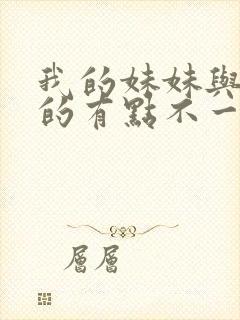 我的妹妹與
的有點不一
層層